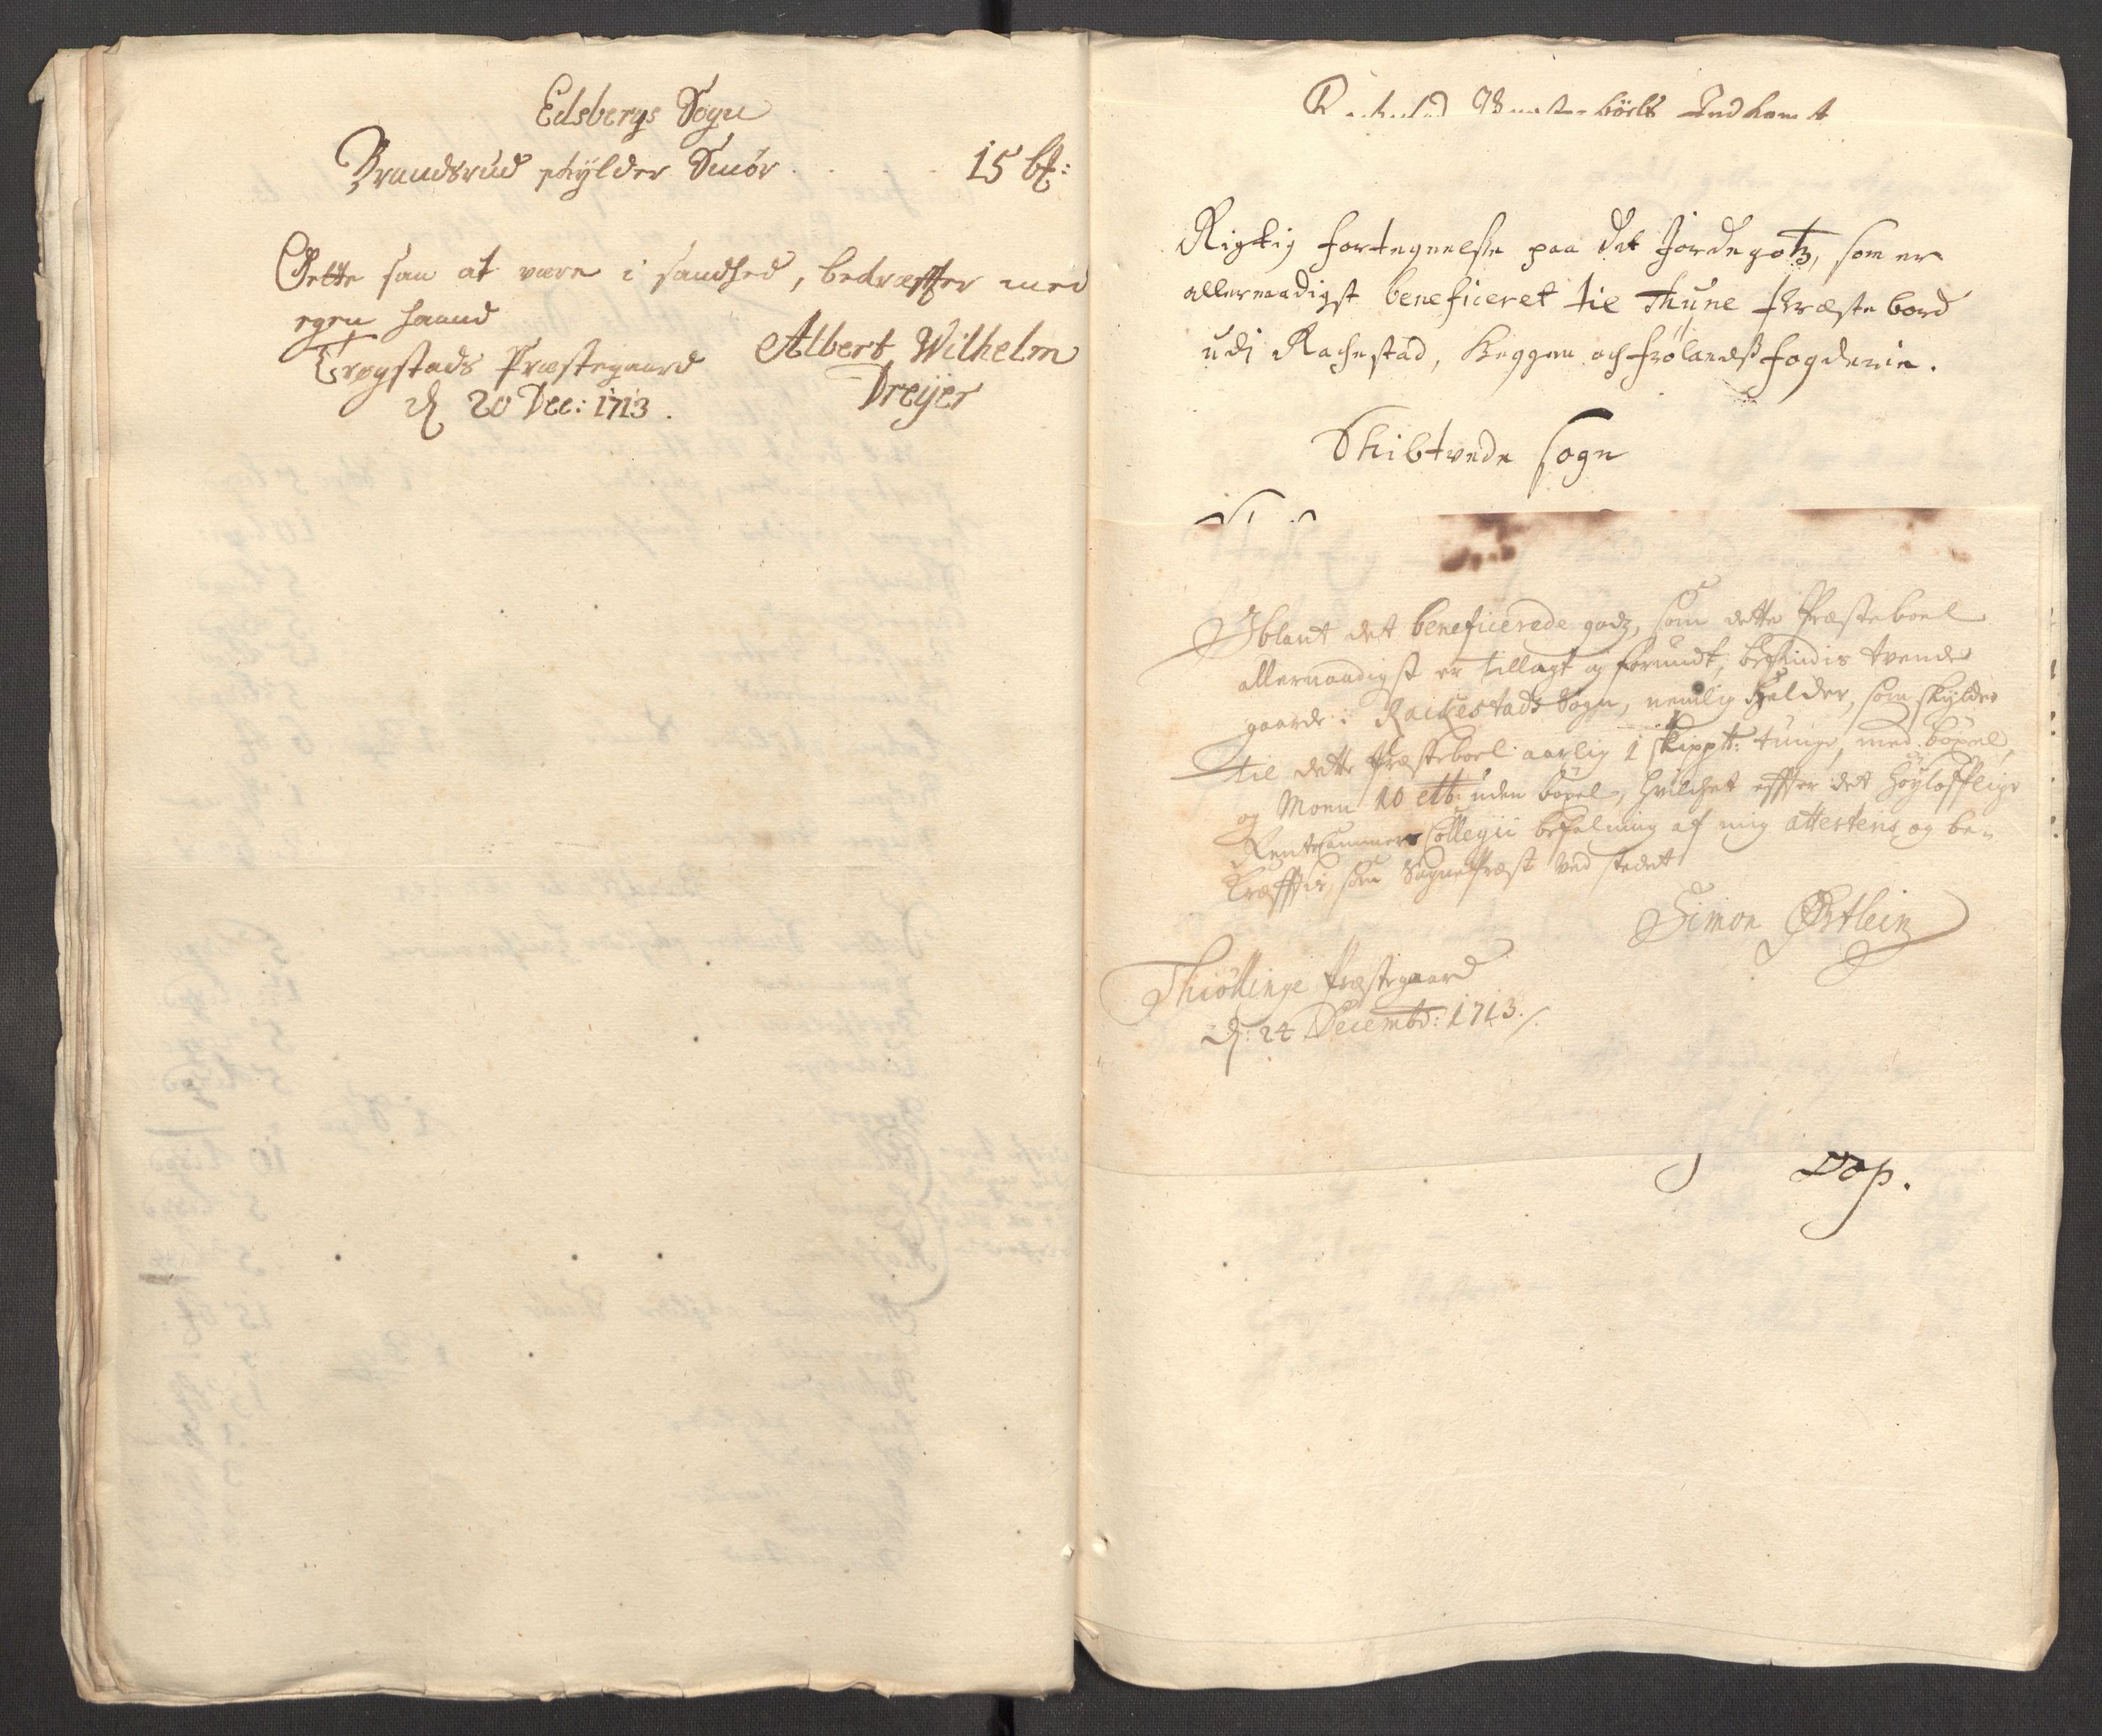 Edsbergs Sogn
Brandsrud schylder Smör 15 lb:
Dette saa at være i sandhed, bekræffter med
egen haand
Trygstads Præstegaard
Albert Wilhelm
d 20 Dec: 1713.
Dreÿer
Indkomst
Rigtig fortegnelße paa det Jordegotz, som er
allernaadigst beneficeret til Thune Præstebord
udi Rachestad, Heggen och Frølandß fogderie.
Skibtvede Sogn
Iblant det beneficerede godz, som dette Præsteboel
allernaadigst er tillagt og forundt, befindis tvende
gaarde i Rackestads Sogn, nemlig Helder, som skylder
til dette Præsteboel aarlig 1 skippd: tunge, med böxel,
og Moen 10 lb: uden böxel, hvilchet effter det Höylofflige
RenteCammer Collegii befalning af mig attesteris og be-
kræfftis, som SognePræst ved stedet
Simon Østlein
Thiöllinge Præstegaard
d: 24 Decembr: 1713.
Dop.